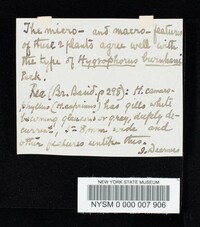 The micro- and macro-features
of these 2 plants agree well with
the type of Hygrophorus burnhami
Peck.
Rea (Br. Basid. p. 298): H. camaro-
phyllus (H. caprinus) has gills white
becoming glaucous or gray, deeply de-
current, 5-8 mm wide and
other features unlike these.
J. Dearness
NEW YORK STATE MUSEUM
NYSM 0 000 007 906